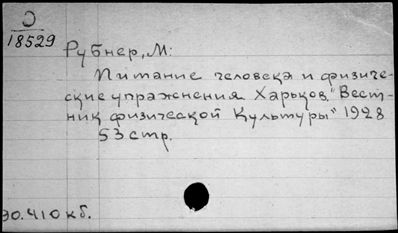 Э
18529
Рубнер, М:
Питание человека и физиче-
ские упражнения Харьков "Вест-
ник физической Культуры" 1928
53 стр.
90.410 кб.